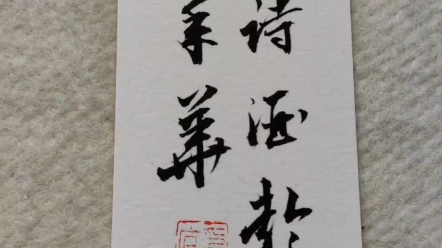 诗酒趁
年华